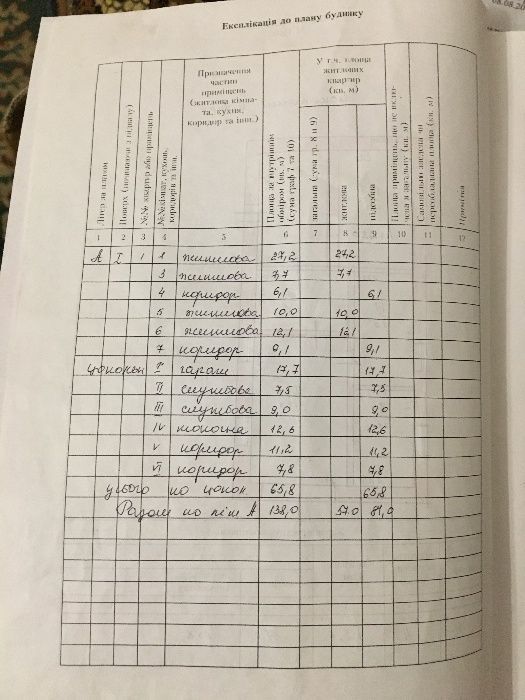 08.08.20
Експлікація до плану будинку
Літер за планом
Поверх (починаючи з підвалу)
№№ квартир або приміщень
№№ кімнат, кухонь, коридорів та інш.
Призначення
частин
приміщень
(житлова кімна-
та, кухня,
коридор та інш.)
Площа за внутрішнім
обміром (кв. м)
(сума граф 7 та 10)
У т.ч. площа
житлових
квартир
(кв. м)
загальна (сума гр. 8 и 9)
житлова
підсобна
Площа приміщень, що не вклю-
чена в загальну (кв. м)
Самовільно зведена чи
переобладнана площа (кв. м)
Примітка
1 2 3 4 5 6 7 8 9 10 11 12
А I 1 1 житлова 27,2 27,2
3 житлова 7,7 7,7
4 коридор 6,1 6,1
5 житлова 10,0 10,0
6 житлова 12,1 12,1
7 коридор 9,1 9,1
I гараж 17,7 17,7
II службове 7,5 7,5
III службова 9,0 9,0
IV топочна 12,6 12,6
V коридор 11,2 11,2
VI коридор 7,8 7,8
усього по цокол 65,8 65,8
Разом по літ А 138,0 57.0 81,0